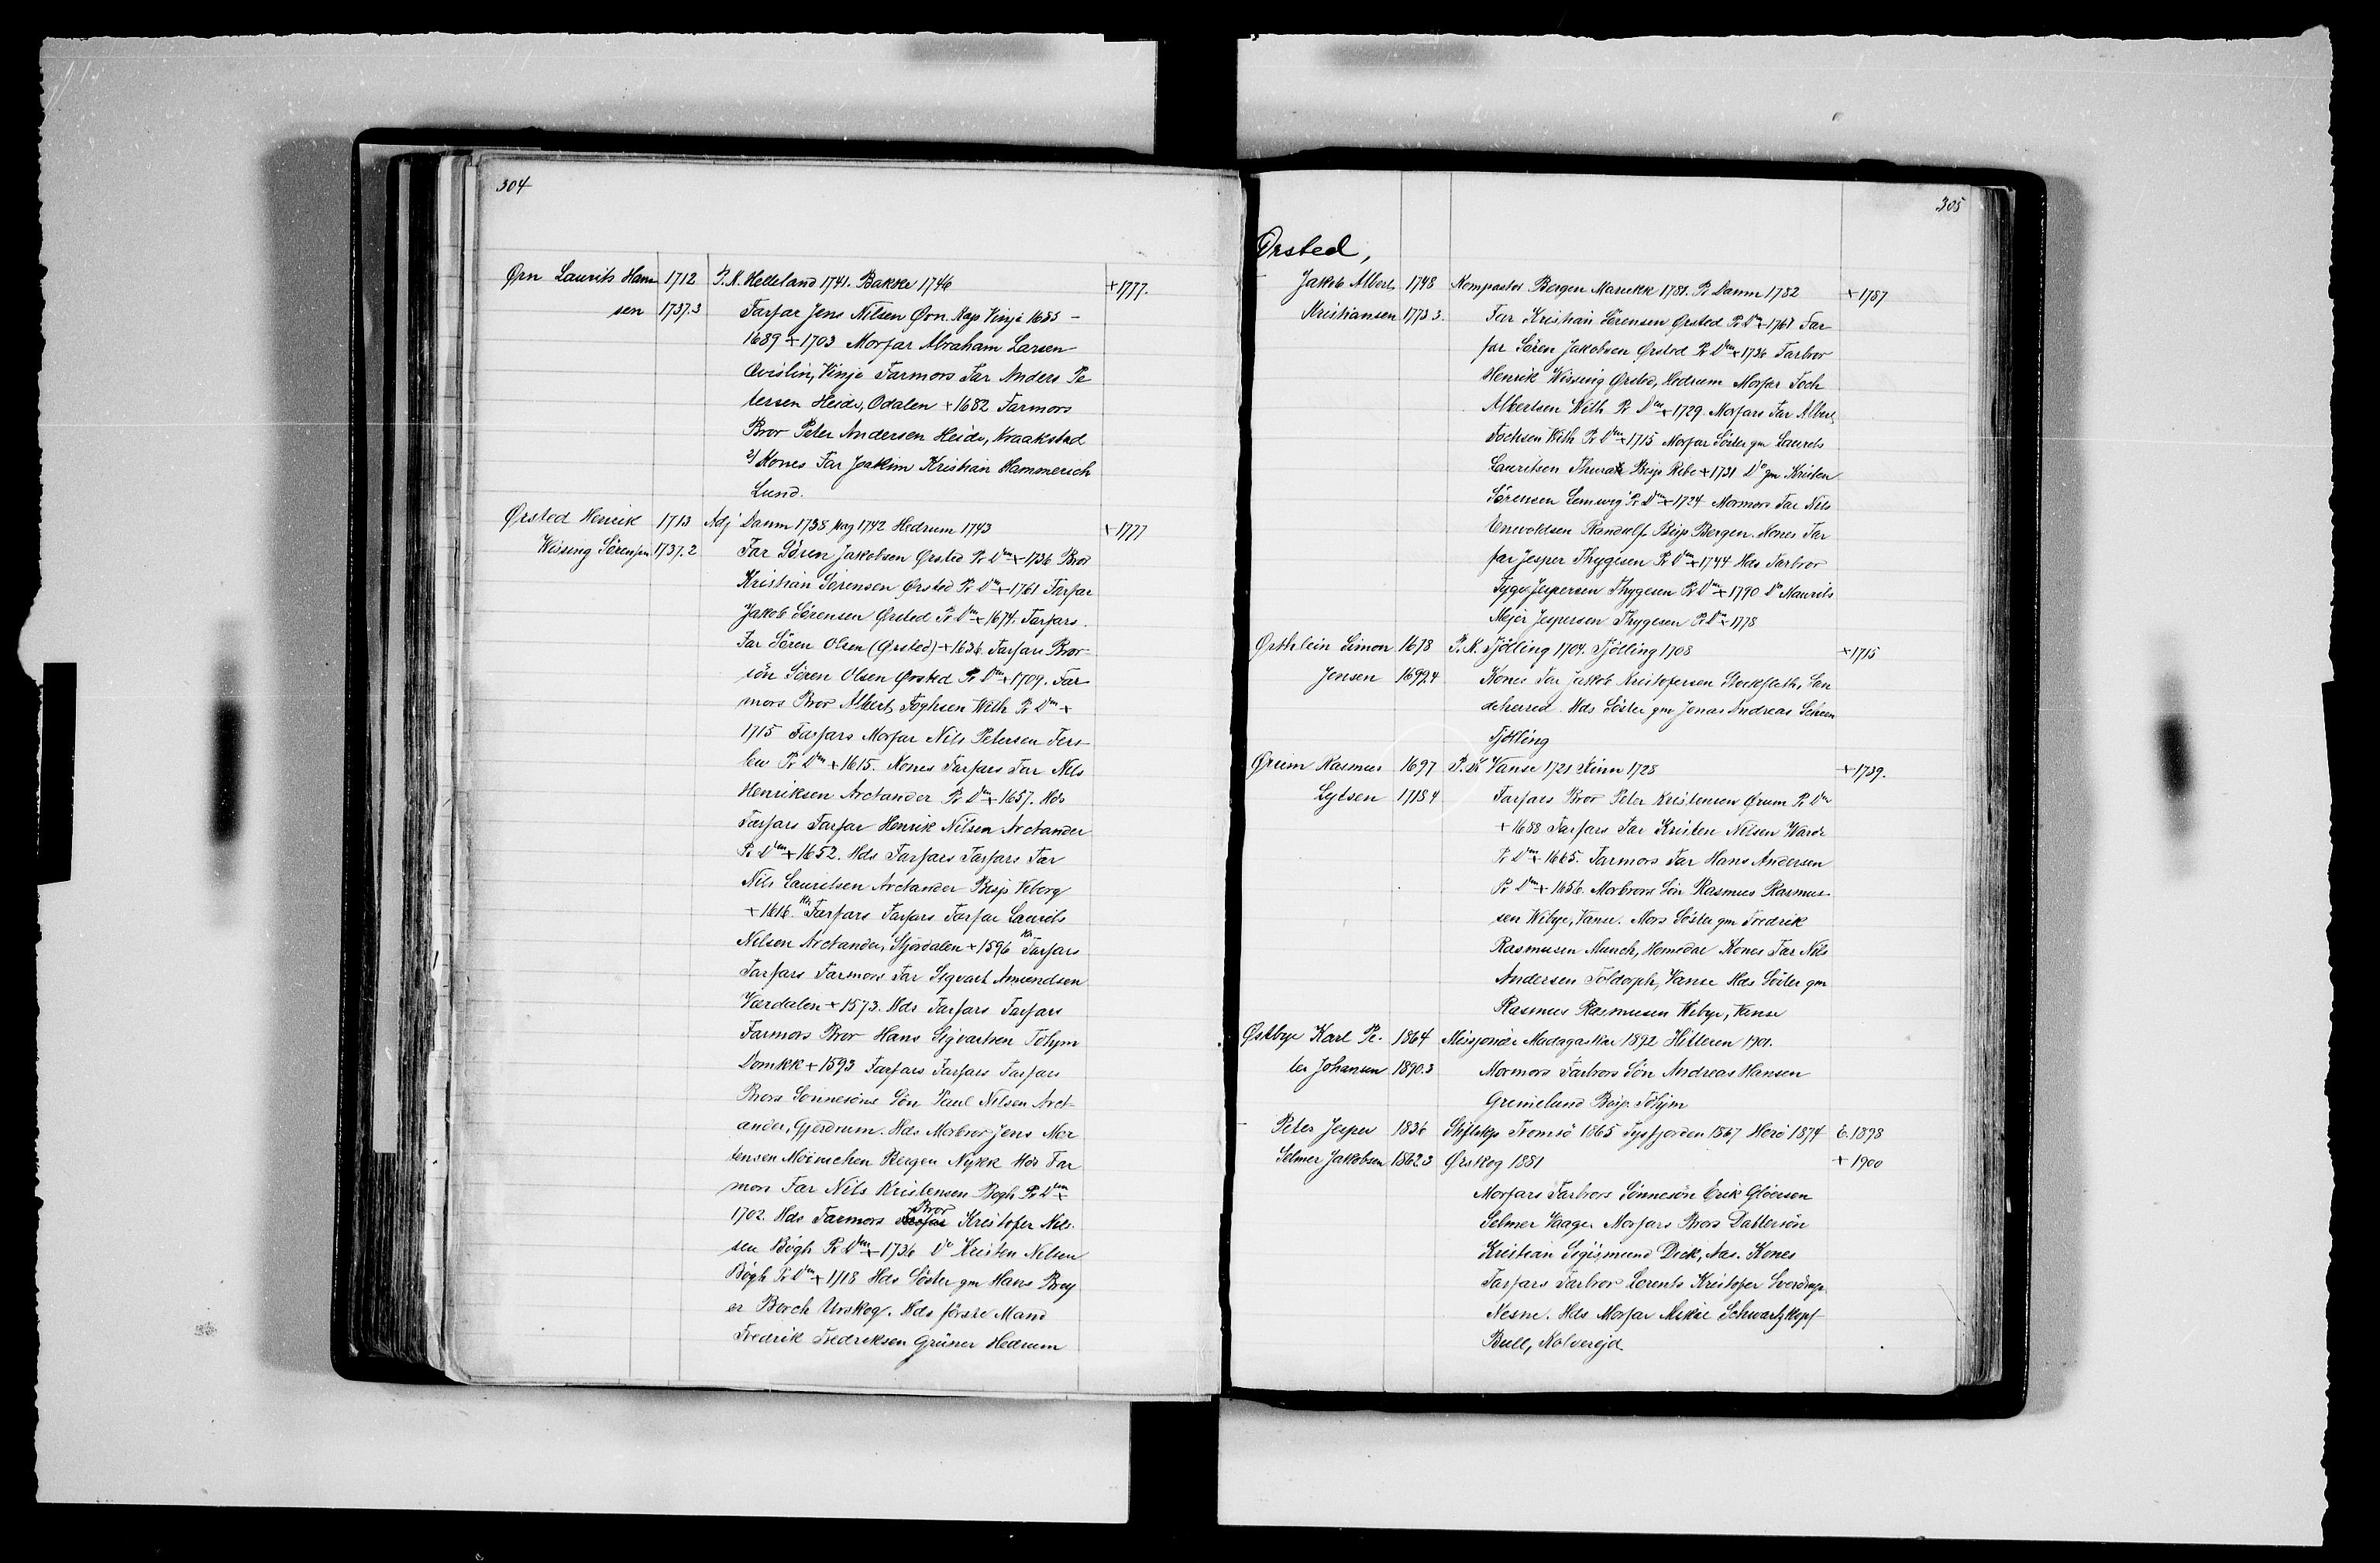 304
Ørn Laurits Han 1712 P. K. Helleland 1741. Bakke 1746 +1777.
sen 1737.3 Farfar Jens Nilsen Ørn. Kap Vinje 1685 -
1689 + 1703 Morfar Abraham Larsen
Qvislin, Vinje Farmors Far Anders Pe
tersen Heide, Odalen + 1682 Farmors
Bror Peter Andersen Heide, Kraakstad
2/ Kones Far Joakim Kristian Hammerich
Lund.
Ørsted Henrik 1713 Adj Danm 1738 Kag 1742 Hedrum 1743 +1777
Wissing Sörensen 1737.2 Far Sören Jakobsen Ørsted Pr Dm + 1736 Bror
Kristian Sörensen Ørsted Pr Dm + 1761 Farfar
Jakob Sörensen Ørsted Pr Dm + 1674. Farfars
Far Sören Olsen (Ørsted) + 1636. Farfars Bror
sön Sören Olsen Ørsted Pr Dm + 1709. Far
mors Bror Albert Foghsen With Pr Dm +
1715 Farfars Morfar Nils Petersen Ters
lew Pr Dm + 1615. Kones Farfars Far Nils
Henriksen Arctander Pr Dm + 1657. Hds
Farfars Farfar Henrik Nilsen Arctander
Pr Dm + 1652. Hds Farfars Farfars Far
Nils Lauritsen Arctander Bisp Viborg
+ 1616. Hds Farfars Farfars Farfar Laurits
Nilsen Arctander, Stjørdalen + 1596 Hds Farfars
Farfars Farmors Far Sigvart Amundsen
Værdalen + 1573. Hds Farfars Farfars
Farmors Bror Hans Sigvartsen Tohjm
Domkk + 1593 Farfars Farfars Farfars
Brors Sönnesöns Sön Paul Nilsen Arct
ander, Gjerdrum. Hds Morbror Jens Mor
tensen Möinichen Bergen Nykk Hds Far
mors Far Nils Kristensen Bogh Pr Dm +
1702. Hds Farmors Bror Kristofer Nils
sen Bögh Pr Dm + 1736 Do Kristen Nilsen
Bögh Pr Dm + 1718 Hds Söster gm Hans Brey
er Borch Urskog. Hds förste Mand
Fredrik Fredriksen Grüner Hedrum
305
Ørsted,
Jakob Albert 1748 Kompastor Bergen Mariekk 1781. Pr Danm 1782 +1787
Kristiansen 1773 3. Far Kristian Sörensen Ørsted Pr Dm + 1761 Far
far Sören Jakobsen Ørsted Pr Dm + 1736 Farbror
Henrik Wissing Ørsted, Hedrum Morfar Foch
Albertsen With Pr Dm + 1729. Morfars Far Albert
Fochsen With Pr Dm + 1715 Morfar Söster gm Laurits
Lauritsen Thura Bisp Ribe + 1731 Do gm Kristen
Sörensen Lemwig Pr Dm + 1724 Mormors Far Nils
Enevoldsen Randulf Bisp Bergen. Kones Far
far Jesper Thygesen Pr Dm + 1744 Hds Farbror
Tyge Jespersen Thygesen Pr Dm + 1790 Do Maurits
Mejer Jespersen Thygesen Pr Dm + 1778
Østhlein Simon 1678 P. K. Tjölling 1704. Tjölling 1708 +1715
Jensen 1699.4 Kones Far Jakob Kristofersen Stockfleth, San
deherred. Hds Söster gm Jonas Andreas Scheen
Tjölling
Ørum Rasmus 1697 P. K. Vanse 1721 Kinn 1728 +1739.
Lytsen 1718 4 Farfars Bror Peter Kristensen Ørum Pr Dm
+ 1688 Farfars Far Kristen Nilsen Warde
Pr Dm + 1665. Farmors Far Hans Andersen
Pr Dm + 1656. Morbrors Sön Rasmus Rasmus
sen Wibye, Vanse. Mors Söster gm Fredrik
Rasmusen Munch, Homedal Kones Far Nils
Andersen Toldorph, Vanse Hds Söster gm
Rasmus Rasmusen Wibye, Vanse
Østbye Karl Pe- 1864 Missjonær Madagaskar 1892 Hitteren 1901.
ter Johansen 1890.3 Mormors Farbrors Sön Andreas Hansen
Grimelund Bisp. Tohjm
Peter Jesper 1836 Stiftskp Tromsö 1865 Tysfjorden 1867 Herö 1874 E. 1898
Selmer Jakobsen 1862.3 Ørskog 1881 + 1900
Morfars Farbrors Sönnesön Erik Glöersen
Selmer Vaage. Morfars Brors Dattersön
Kristian Sigismund Dick, Aas. Kones
Farfars Farbror Lorents Kristofer Sverdrup
Nesne. Hds Morfar Mikal Schwartzkopf
Bull, Kolvereid